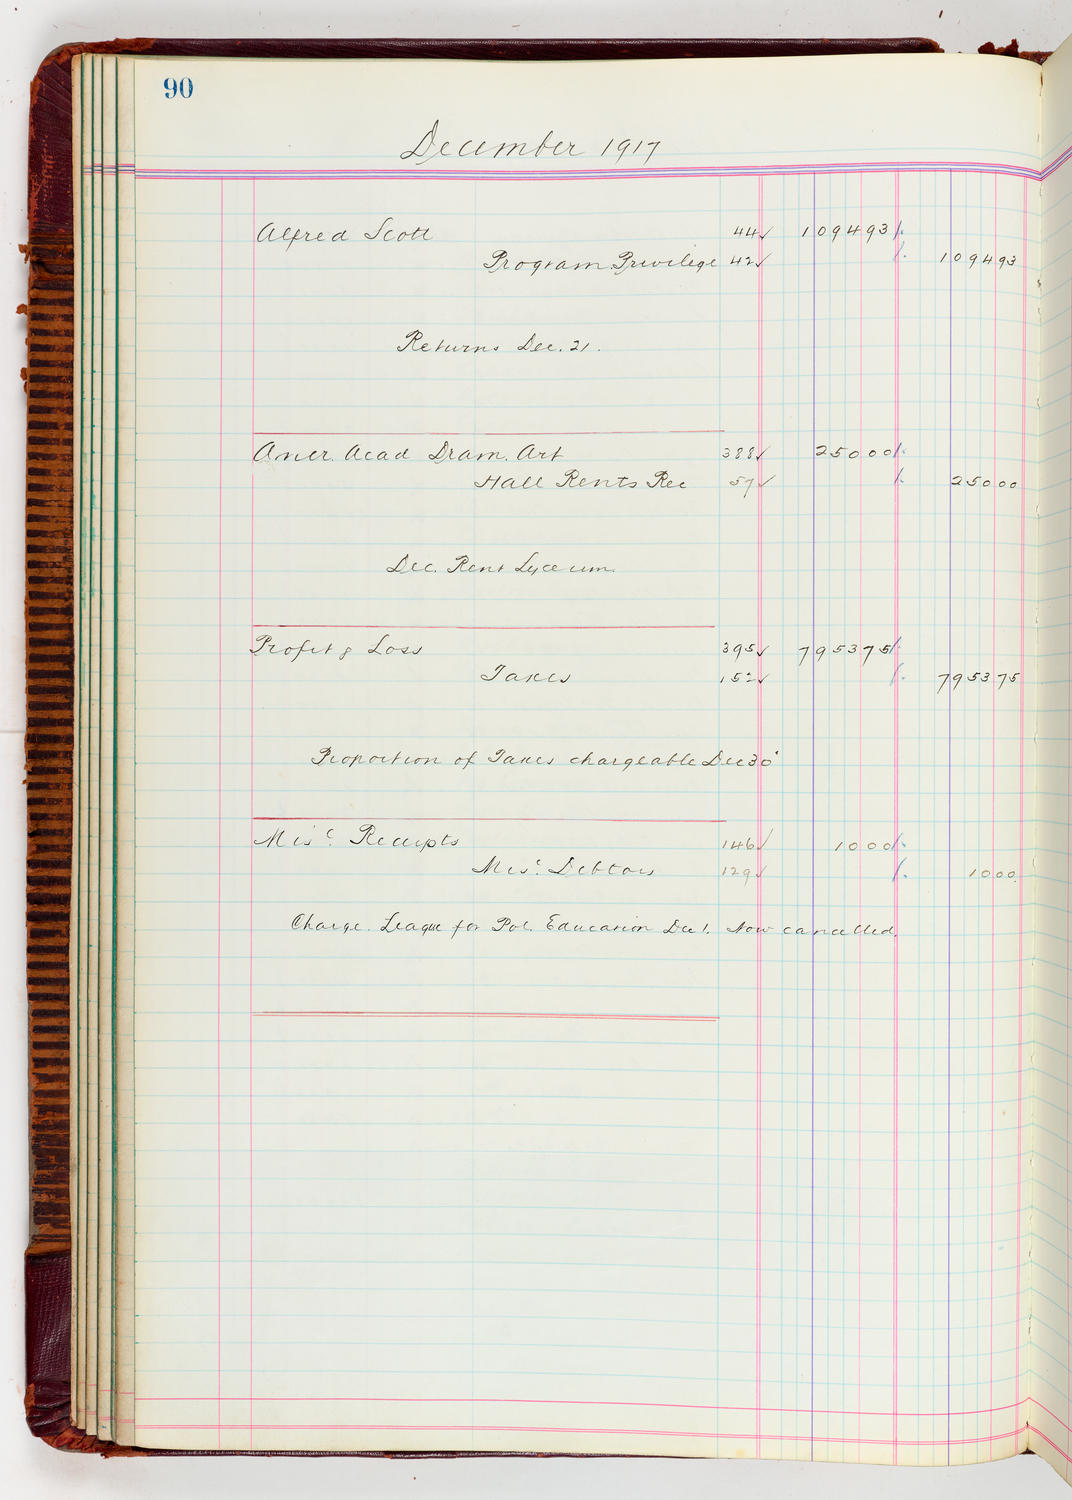 90
December 1917
Alfred Scott 44✓ 109493
Program Privilege 42✓ 109493
Returns Dec. 21.
Amer. Acad Dram. Art 388✓ 25000
Hall Rents Rec 57✓ 25000
Dec. Rent Lyceum.
Profit & Loss 395✓ 795375
Taxes 152✓ 795375
Proportion of Taxes chargeable Dec 30
Misc. Receipts 146✓ 1000
Misc. Debtors 129✓ 1000
Charge. League for Pol. Education Dec 1. Now cancelled.